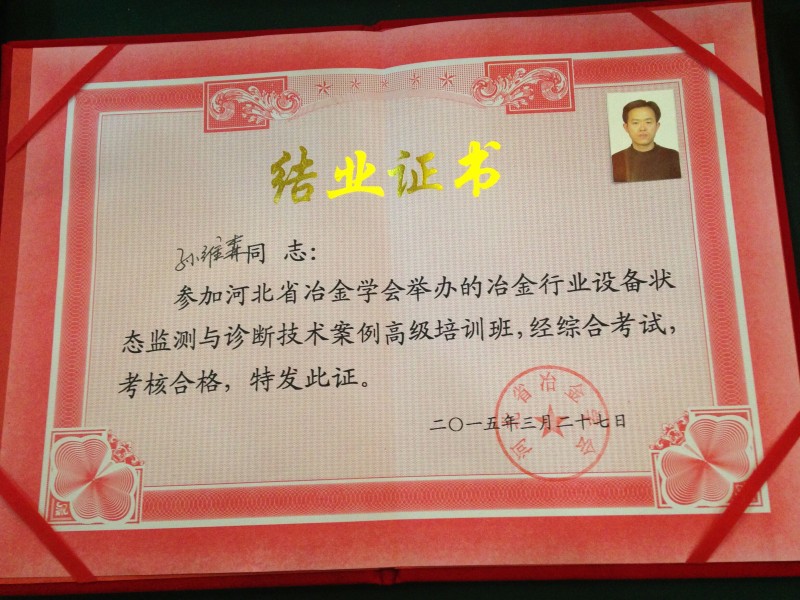 结业证书
孙维犇同志：
参加河北省冶金学会举办的冶金行业设备状
态监测与诊断技术案例高级培训班，经综合考试，
考核合格，特发此证。
河北省冶金学会
二〇一五年三月二十七日